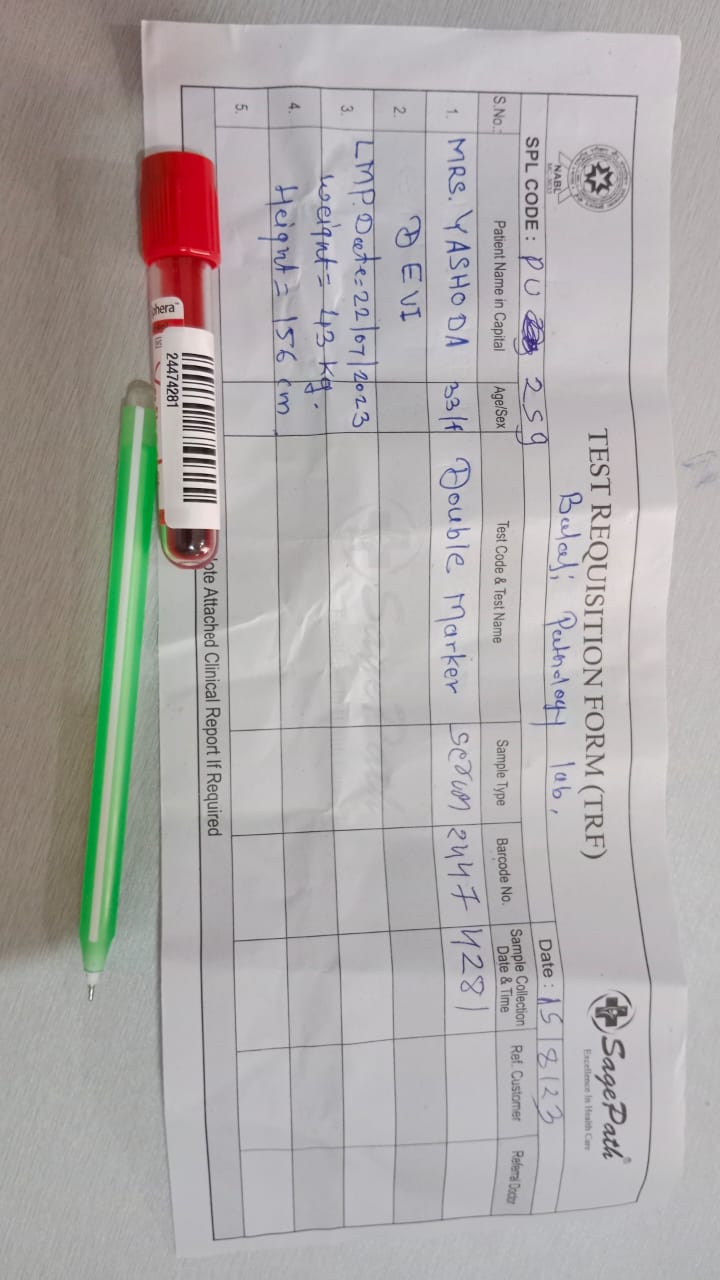 TEST REQUISITION FORM (TRF)
SagePath®
Excellence In Health Care
NABL
Balaji Pathology lab,
SPL CODE : PU 259
Date : 15/8/23
S.No.: Patient Name in Capital Age/Sex Test Code & Test Name Sample Type Barcode No. Sample Collection Date & Time Ref. Customer Referral Doctor
1. MRS. YASHODA 33/f Double Marker serum 24474281
2. DEVI
3. LMP. Date = 22/07/2023
weight = 43 kg.
4. Height = 156 cm
5.
ote Attached Clinical Report If Required
phera™
24474281